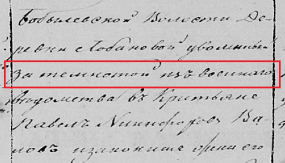 Бобылевской Волости Де-
ревни Лобановой уволенный
За темнотой изъ военнаго
ведомства въ Крестьяне
Павелъ Никифоровъ Ва
и законная жена его